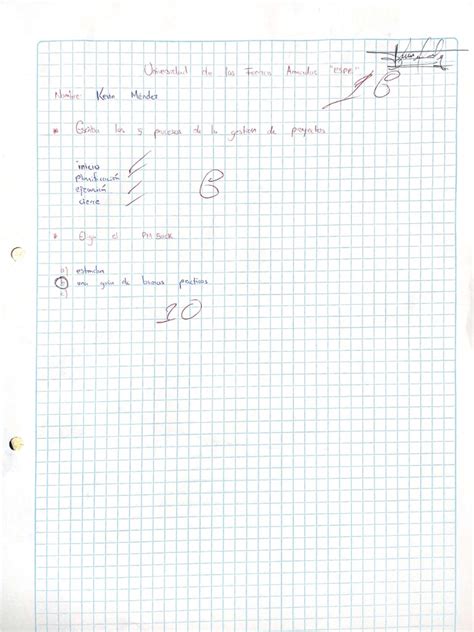 Universidad de las Fuerzas Armadas "ESPE"
16
Nombre: Kevin Méndez
* Escriba los 5 procesos de la gestion de proyectos
inicio
planificación
ejecución
cierre
6
* El PM BOOK
a) estandar
b) una guia de buenas practicas
c)
10